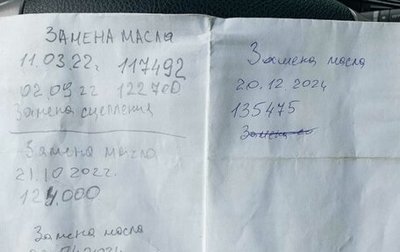 ЗАМЕНА МАСЛА
11.03.22г. 117492
02.09.22 122700
Замена сцепления
Замена масла
21.10.2022г.
124000
Замена масла
Замена масла
20.12.2024
135475